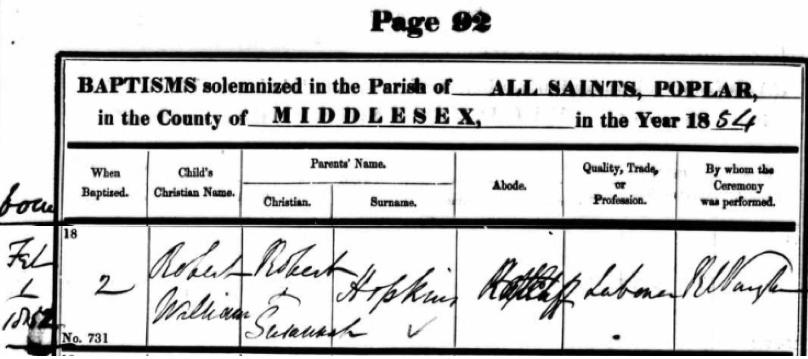 Page 92
BAPTISMS solemnized in the Parish of ALL SAINTS, POPLAR,
in the County of MIDDLESEX, in the Year 1854
When Baptized.
Child's Christian Name.
Parents' Name.
Christian.
Surname.
Abode.
Quality, Trade, or Profession.
By whom the Ceremony was performed.
born
Feb
1
18
No. 731
2
Robert
William
Robert
+
Susannah
Hopkins
Ratcliff
Labourer